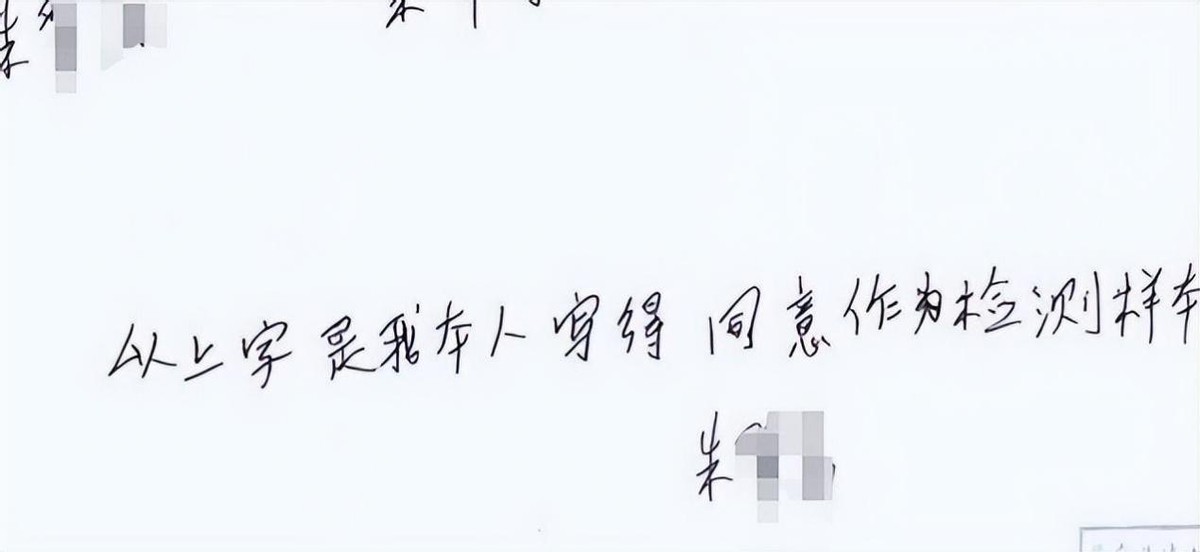 朱
以上字是我本人写得 同意作为检测样本
朱